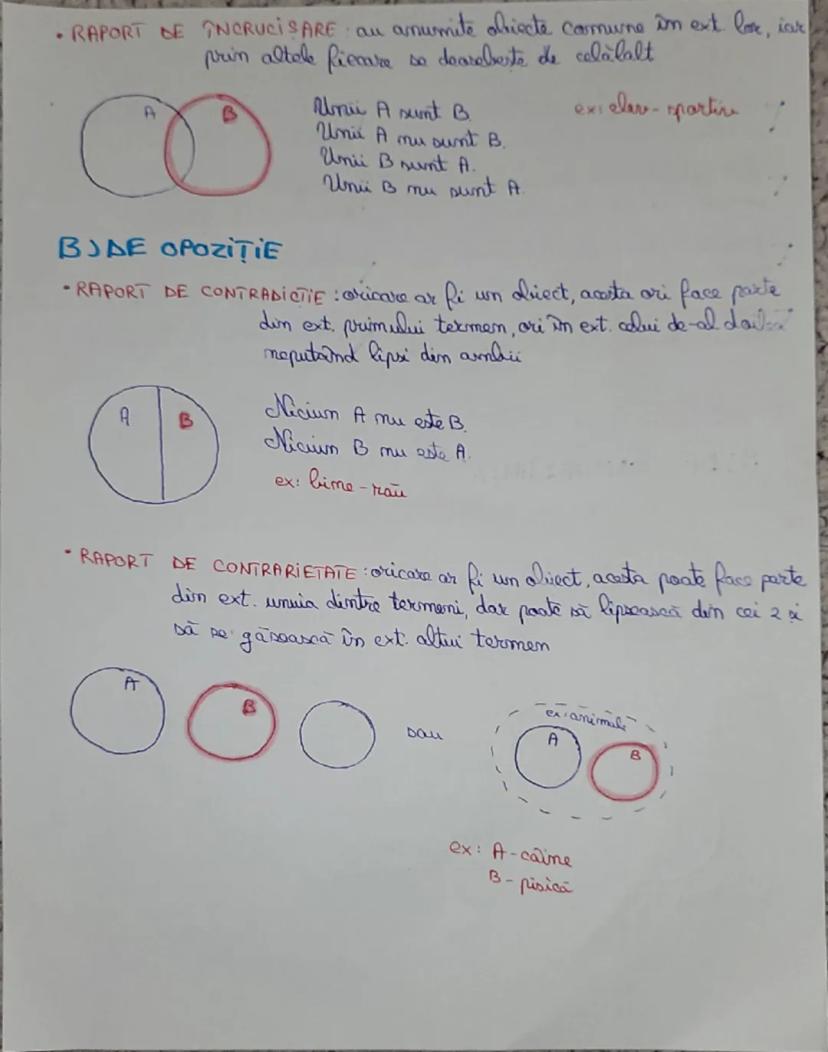 • RAPORT DE ÎNCRUCIȘARE: au anumite obiecte comune în ext. lor, iar
prin altele fiecare se deosebește de celălalt
A
B
Unii A sunt B.
Unii A nu sunt B.
Unii B sunt A.
Unii B nu sunt A.
ex: elev - sportiv
B) DE OPOZIȚIE
• RAPORT DE CONTRADICȚIE: oricare ar fi un obiect, acesta ori face parte
din ext. primului termen, ori în ext. celui de-al
neputând lipsi din ambii
A
B
Niciun A nu este B.
Niciun B nu este A.
ex: bine - rău
• RAPORT DE CONTRARIETATE: oricare ar fi un obiect, acesta poate face parte
din ext. unuia dintre termeni, dar poate să lipsească din cei 2 și
să se găsească în ext. altui termen
A
B
sau
ex: animale
A
B
ex: A - câine
B - pisică